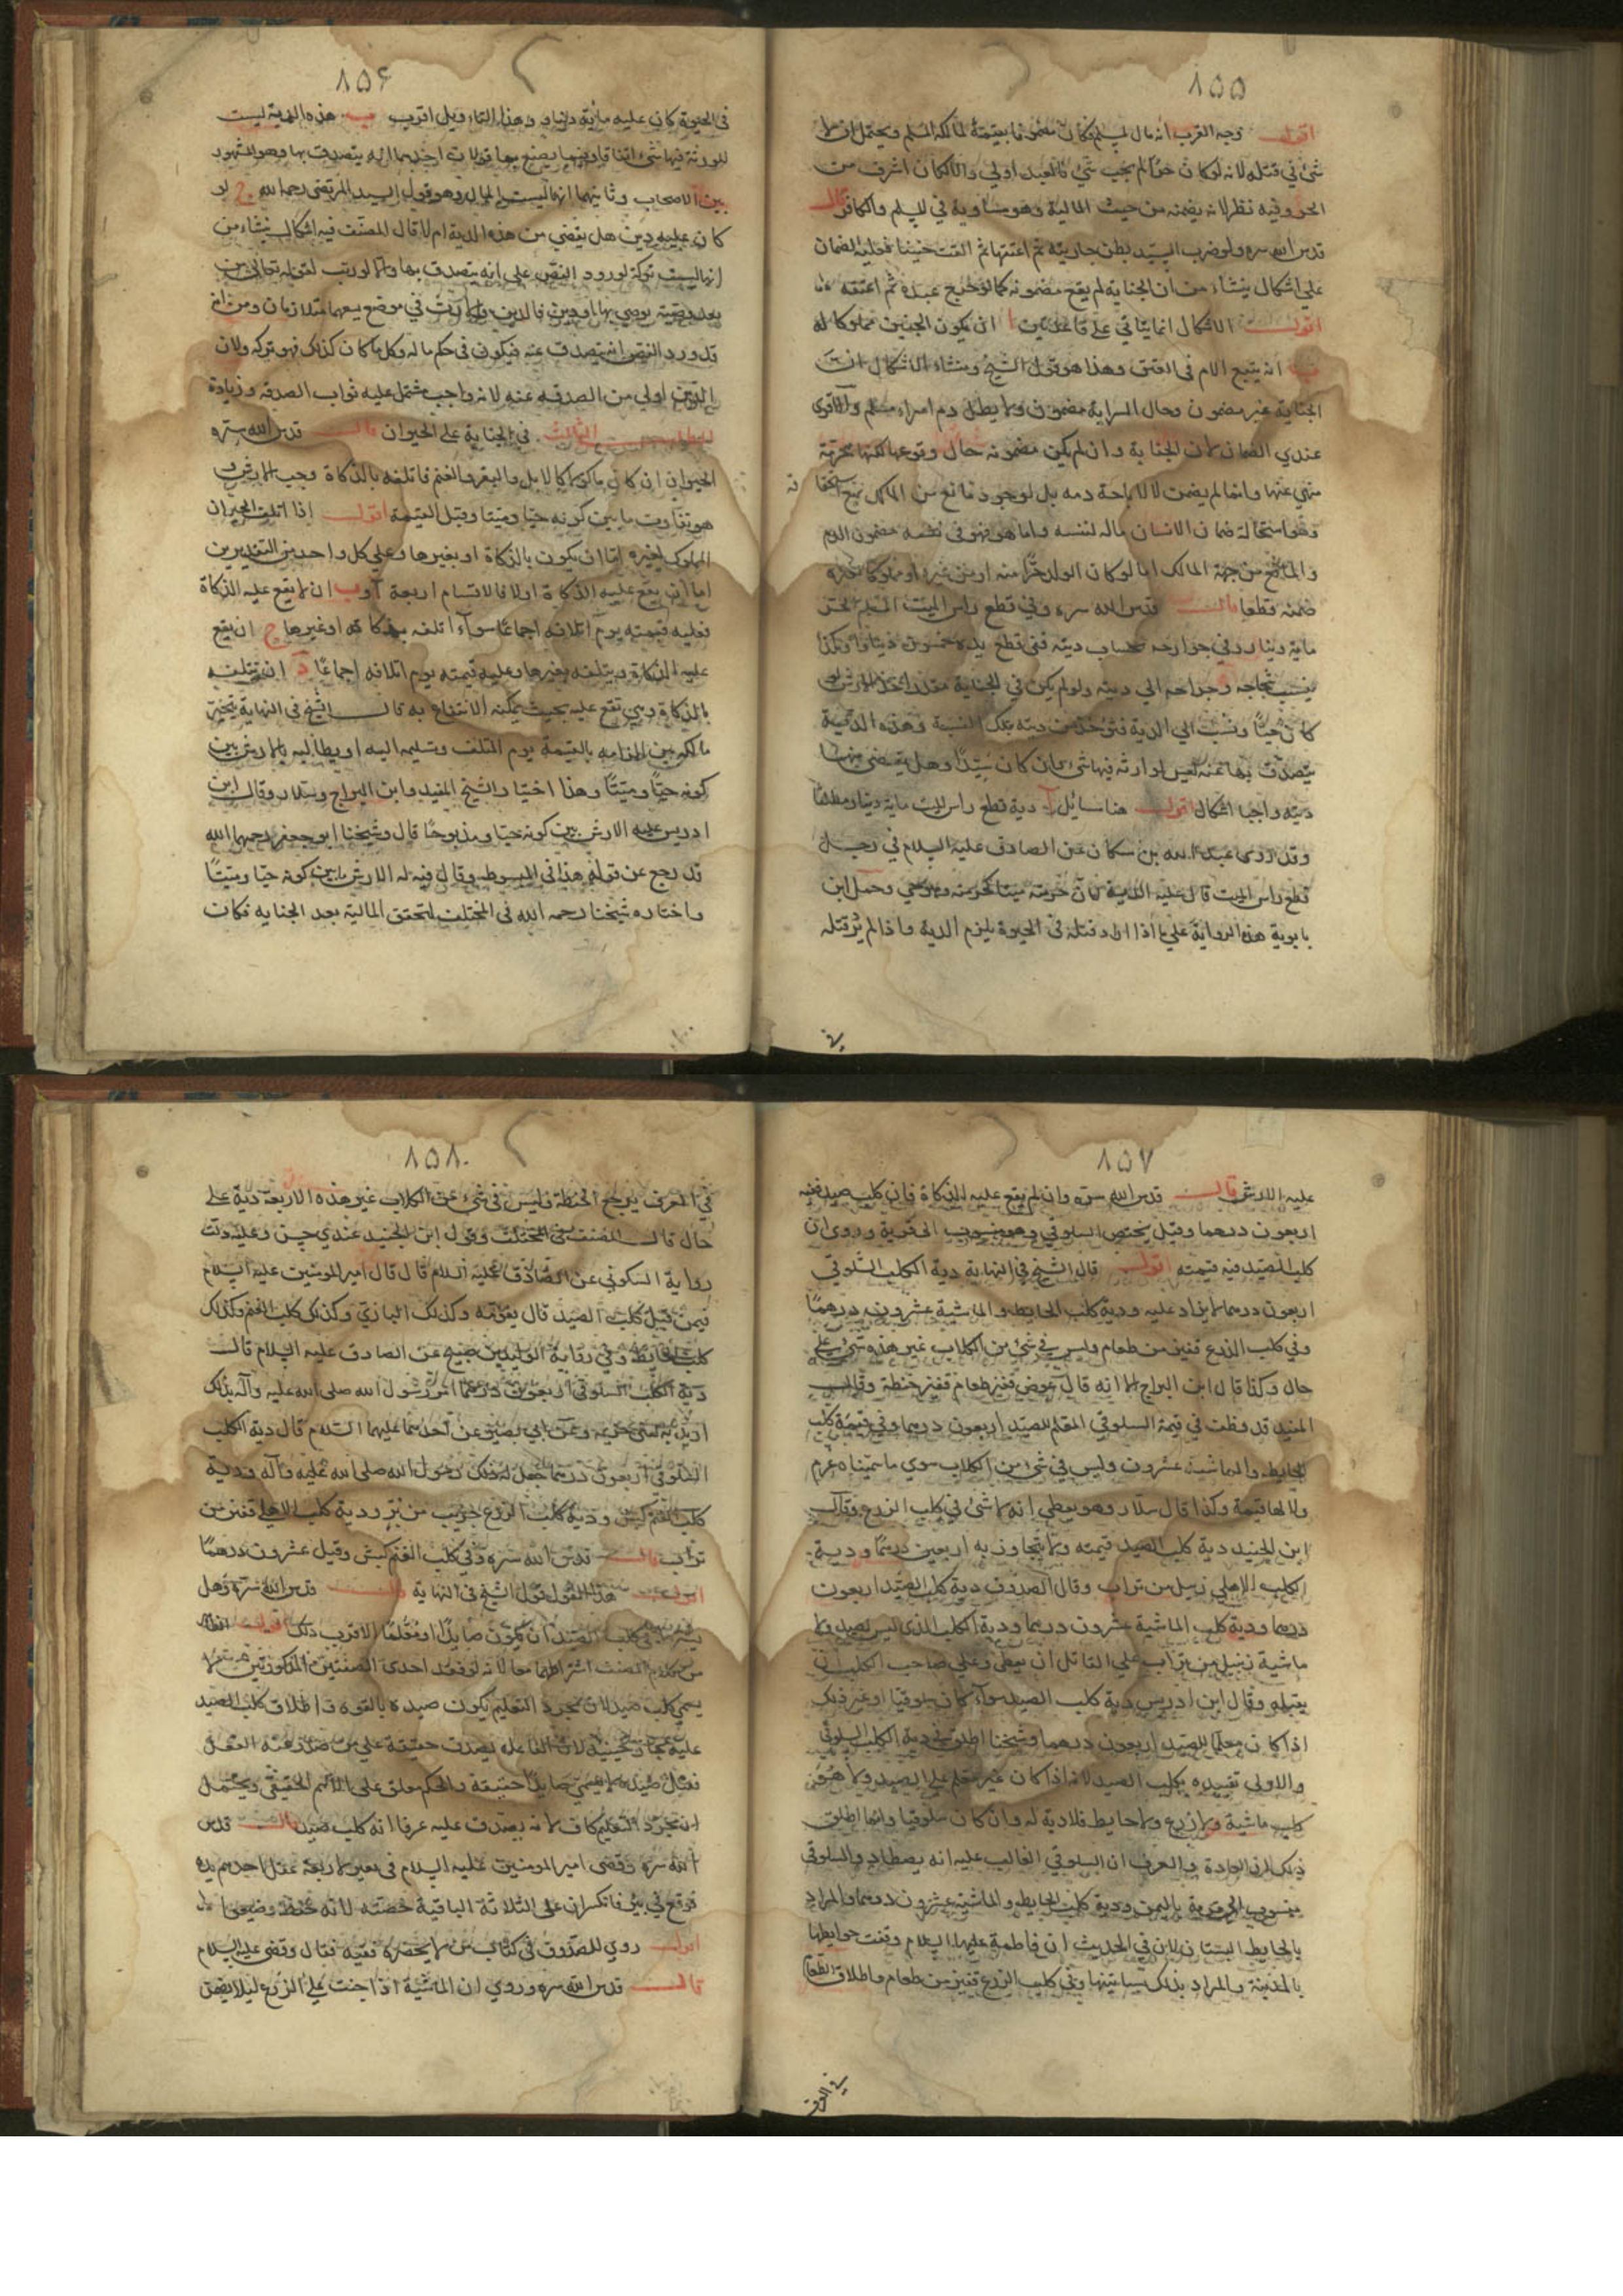 ٨۵۵
اقول وجه القرب انه مال لمسلم فكان مضمونا بقيمة لمالكه المسلم ويحتمل ان لا
شئ في قتله لانه لو كان حرا لم يجب شئ فالعبد اولي والا لكان اشرف من
الحر وفيه نظر لانه يضمنه من حيث المالية وهو مساوية في المسلم والكافر قال
قدس الله سره ولو ضرب السيد بطن جاريته ثم اعتقها ثم القت جنينا فعليه الضمان
علي اشكال ينشاء من ان الجناية لم يقع مضمونه كما لو جرح عبده ثم اعتقه
اقول الاشكال انما يتاتي علي قاعدتين ا ان يكون الجنين مملوكا له
ب انه يتبع الام في العتق وهذا هو قول الشيخ ومنشاء الاشكال ان
الجناية غير مضمون وحال السراية مضمون ولا يطل دم امراء مسلم والاقوى
عندي الضمان لان الجناية وان لم يكن مضمونه حال وقوعها لكنها محرمة
منهي عنها وانما لم يضمن لا لاباحة دمه بل لوجود مانع من المالك
وهو استحالة ضمان الانسان ماله لنفسه واما هو فهو في نفسه مضمون الدم
والمانع من جهة المالك اما لو كان الولد حرا منه او من غيره او مملوكا لغيره
ضمنه قطعا قال قدس الله سره وفي قطع راس الميت المسلم الحر
ماية دينار وفي جوارحه بحساب ديته ففي قطع يده خمسون دينارا وكذا
ينسب شجاجه وجراحه الي ديته ولو لم يكن في الجناية مقدر اخذ الارش لو
كان حيا ونسب الي الدية فتوخذ من ديته بتلك النسبة وهذه الدية
يتصدق بها عنه ليس لوارثه فيها شئ وان كان سيدا وهل يقضي منها
دينه واجبا اشكال اقول هنا مسايل آ دية قطع راس الميت ماية دينار مطلقا
وقد روى عبد الله بن مسكان عن الصادق عليه السلام في رجل
قطع راس الميت قال عليه الدية لان حرمته ميتا كحرمته وهو حي وحمل ابن
بابوية هذه الرواية علي ما اذا اراد قتله في الحيوة يلزم الدية واذا لم يرد قتله
٨۵۶
في الحيوة كان عليه ماية دينار وهذا التاويل اقرب ب هذه الدية ليست
للورثة فيها شئ اتفاقا وفيما يصنع بها قولان احدهما انه يتصدق بها وهو المشهور
بين الاصحاب وثانيهما انها لبيت المال وهو قول السيد المرتضى رحمه الله ج لو
كان عليه دين هل يقضي من هذه الدية ام لا قال المصنف فيه اشكال ينشاء من
انها ليست تركة لورود النص علي انه يتصدق بها والا لورثت لقوله تعالى من
بعد وصية يوصي بها او دين فالدين والارث في موضع يعمهما متلازمان ومن انه
قد ورد النص انه يتصدق عنه فيكون في حكم ماله وكل ما كان كذلك فهو تركه ولان
الدين اولي من الصدقه عنه لانه واجب مشتمل عليه ثواب الصدقه وزيادة
المطلب الثالث في الجناية علي الحيوان قال قدس الله سره
الحيوان ان كان ماكولا كالابل والبقر والغنم فاتلفه بالذكاة وجب الارش و
هو تفاوت ما بين كونه حيا وميتا وقيل القيمة اقول اذا اتلف الحيوان
المملوك لغيره اما ان يكون بالذكاة او بغيرها وعلي كل واحد من التقديرين
اما ان يقع عليه الذكاة اولا فالاقسام اربعة آ وب ان لا يقع عليه الذكاة
فعليه قيمته يوم اتلافه اجماعا سواء اتلفه بذكاة او غيرها ج ان يقع
عليه الذكاة ويتلفه بغيرها وعليه قيمته يوم اتلافه اجماعا د ان يتلفه
بالذكاة وهي تقع عليه بحيث يمكنه الانتفاع به قال الشيخ في النهاية يتخير
مالكه بين الزامه بالقيمة يوم التلف وتسليمه اليه او يطالبه بالارش بين
كونه حيا وميتا وهذا اختيار الشيخ المفيد وابن البراج وسلار وقال ابن
ادريس عليه الارش بين كونه حيا ومذبوحا قال وشيخنا ابو جعفر رحمهما الله
قد رجع عن قوله هذا في المبسوط وقال فيه له الارش ما بين كونه حيا وميتا
واختاره شيخنا رحمه الله في المختلف لتحقق المالية بعد الجنايه فكان
٨۵٧
عليه الارش قال قدس الله سره وان لم يقع عليه الذكاة فان كلب صيد ففيه
اربعون درهما وقيل يختص السلوقي وهو منسوب الى قرية وروى ان
كلب الصيد فيه قيمته اقول قال الشيخ في النهاية دية الكلب السلوقي
اربعون درهما لا يزاد عليه ودية كلب الحايط والماشية عشرون درهما
وفي كلب الزرع قفيز من طعام وليس في شئ من الكلاب غير هذه شئ علي
حال وكذا قال ابن البراج الا انه قال عوض قفيز طعام قفيز حنطة وقال
المفيد قد وظف في قيمة السلوقي المعلم للصيد اربعون درهما وفي قيمة كلب
الحايط والماشية عشرون وليس في شئ من الكلاب سوي ما سميناه غرم
ولا لها قيمة وكذا قال سلار وهو يعطي انه لا شئ في كلب الزرع وقال
ابن الجنيد دية كلب الصيد قيمته ولا يتجاوز به اربعين درهما ودية
الكلب الاهلي زبيل من تراب وقال الصدوق دية كلب الصيد اربعون
درهما ودية كلب الماشية عشرون درهما ودية الكلب الذي ليس لصيد ولا
ماشية زنبيل من تراب علي القاتل ان يعطي وعلي صاحب الكلب ان
يقبله وقال ابن ادريس دية كلب الصيد سواء كان سلوقيا او غير ذلك
اذا كان معلما للصيد اربعون درهما وشيخنا اطلق في دية الكلب السلوقي
والاولى تقييده بكلب الصيد لانه اذا كان غير معلم علي الصيد ولا هو
كلب ماشية ولا زرع ولا حايط فلا دية له وان كان سلوقيا وانما اطلق
ذلك لان العادة والعرف ان السلوقي الغالب عليه انه يصطاد والسلوقي
منسوب الى قرية باليمن ودية كلب الحايط والماشية عشرون درهما والمراد
بالحايط البستان لان في الحديث ان فاطمة عليها السلام وقفت حوايطها
بالمدينة والمراد بذلك بساتينها وفي كلب الزرع قفيز من طعام واطلاق الطعام
٨۵٨
في العرف يرجع الحنطة وليس في شئ من الكلاب غير هذه الاربعة دية علي
حال قال المصنف في المختلف وقول ابن الجنيد عندي حسن وعليه دلت
رواية السكوني عن الصادق عليه السلام قال قال امير المومنين عليه السلام
فيمن قتل كلب الصيد قال يقومه وكذلك البازي وكذلك كلب الغنم وكذلك
كلب الحايط وفي رواية الوليد بن صبيح عن الصادق عليه السلام قال
دية الكلب السلوقي اربعون درهما امر رسول الله صلى الله عليه وآله بذلك
ان يديه لبني خزيمه وعن ابي بصير عن احدهما عليهما السلام قال دية الكلب
السلوقي اربعون درهما جعل له ذلك رسول الله صلى الله عليه وآله ودية
كلب الغنم كبش ودية كلب الزرع جريب من بر ودية كلب الاهلي قفيز من
تراب قال قدس الله سره وفي كلب الغنم كبش وقيل عشرون درهما
اقول هذا القول قول الشيخ في النهاية قال قدس الله سره وهل
يشترط في كلب الصيد ان يكون صايدا او معلما الاقرب ذلك اقول
من كلام المصنف اشتراطهما معا لانه لو فقد احدى الصفتين المذكورتين
يسمي كلب صيد لان بمجرد التعليم يكون صيده بالقوه واطلاق كلب الصيد
عليه مجاز حينئذ لان الفاعل يصدق حقيقة علي من صدر عنه الفعل
فقبل صيده لا يسمى صايدا حقيقة والحكم معلق على الاسم الحقيقي ويحتمل
ان مجرد التعليم كاف لانه يصدق عليه عرفا انه كلب صيد قال قدس
الله سره وقضى امير المومنين عليه السلام في بعير لاربعة عقل احدهم يده
فوقع في بئر فانكسر ان على الثلاثة الباقية حصته لانه حفظ وضيعوا
اقول روي للصدوق في كتاب من لا يحضره فقيه فقال وقضى عليه السلام
قال قدس الله سره وروي ان الماشية اذا جنت علي الزرع ليلا يضمن